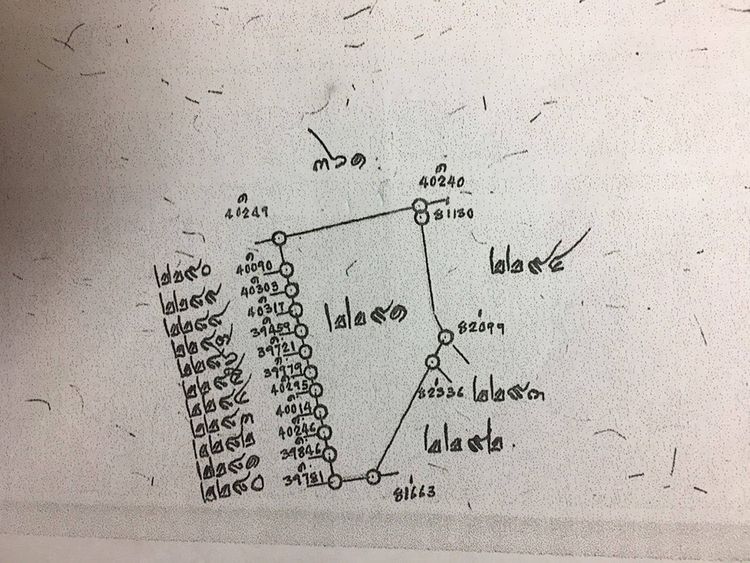 ๓๖๑
ก
40240
ก
40249
81130
๒๒๙๔
๒๒๙๐
ก
40090
๒๒๘๙
ก
40303
๒๒๘๘
ก
40317
๒๒๙๑
๒๒๘๗
ก
39459
82099
๒๒๘๖
ก
39721
๒๒๘๕
ก
39779
๒๒๘๔
ก
40295
82336
๒๒๙๓
๒๒๘๓
ก
40014
๒๒๘๒
ก
40246
๒๒๙๒
๒๒๘๑
ก
39846
๒๒๘๐
ก
39781
81663